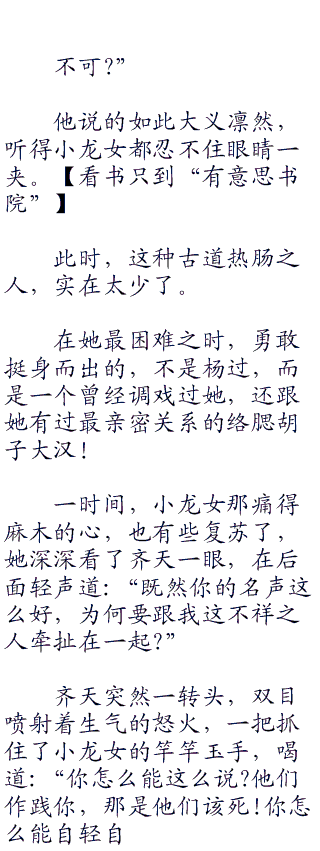 不可?”
他说的如此大义凛然，
听得小龙女都忍不住眼睛一
夹。【看书只到“有意思书
院”】
此时，这种古道热肠之
人，实在太少了。
在她最困难之时，勇敢
挺身而出的，不是杨过，而
是一个曾经调戏过她，还跟
她有过最亲密关系的络腮胡
子大汉!
一时间，小龙女那痛得
麻木的心，也有些复苏了，
她深深看了齐天一眼，在后
面轻声道:“既然你的名声这
么好，为何要跟我这不祥之
人牵扯在一起?”
齐天突然一转头，双目
喷射着生气的怒火，一把抓
住了小龙女的竿竿玉手，喝
道:“你怎么能这么说?他们
作践你，那是他们该死!你怎
么能自轻自